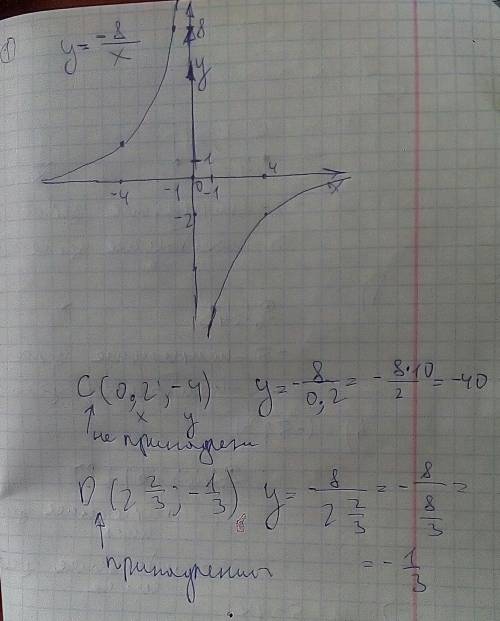 ①
y = -8/x
8
y
1
-4 -1 0 1 4 x
-2
C (0,2 ; -4) y = -8/0,2 = -8·10/2 = -40
x y
не принадлежи
D (2 2/3 ; -1/3) y = -8/(2 2/3) = -8/(8/3) =
принадлежит = -1/3